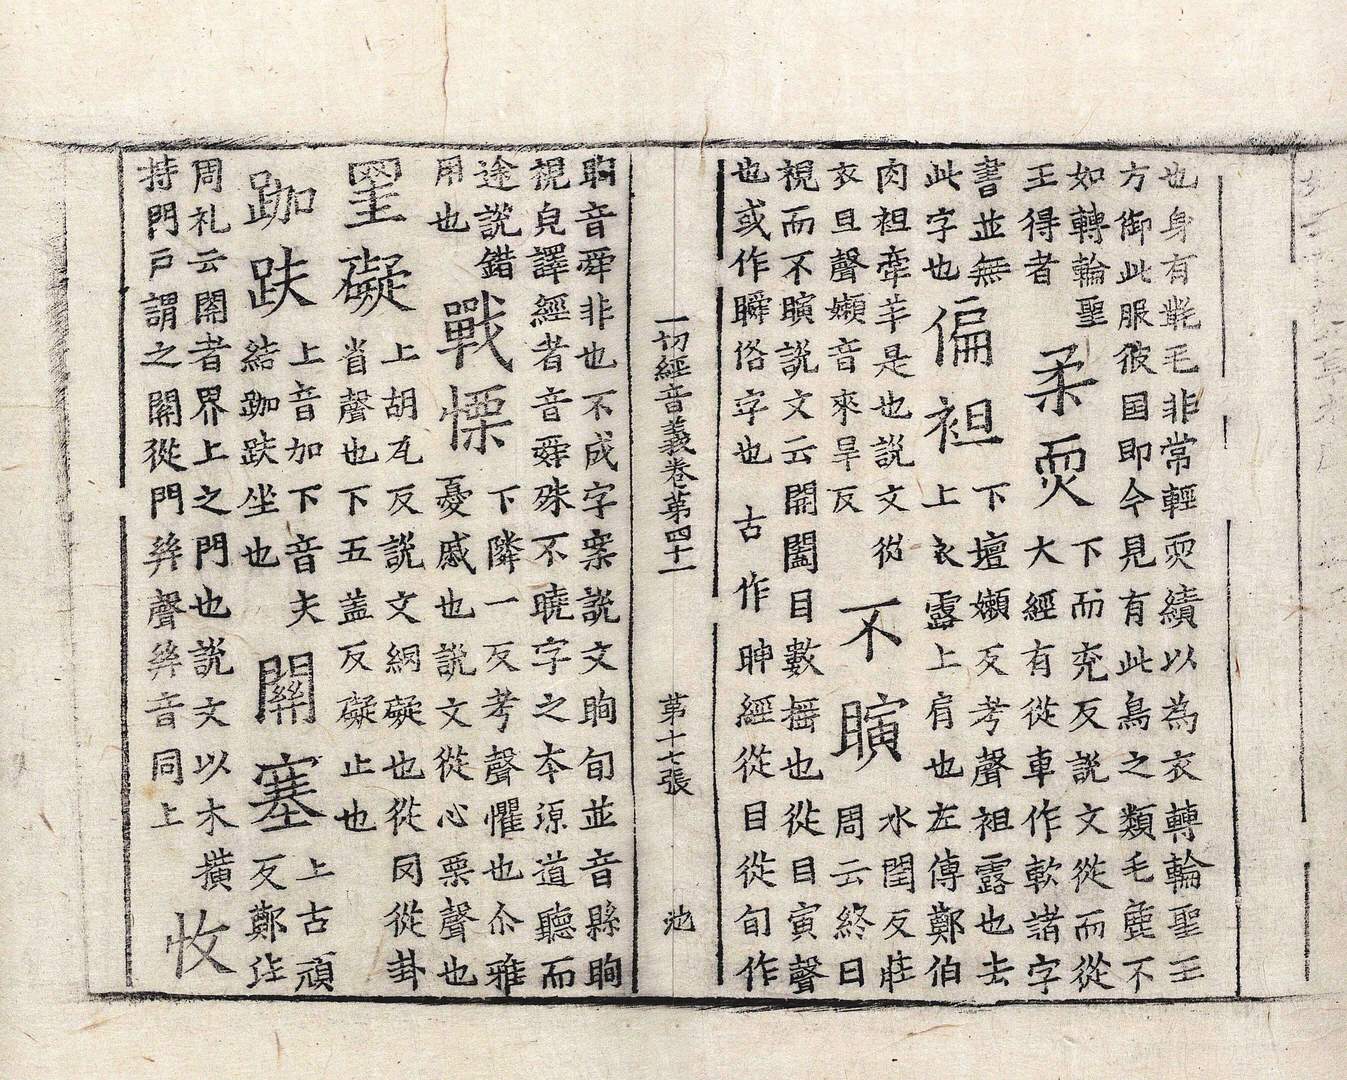 也身有毳毛非常輕耎績以為衣轉輪聖王
方御此服彼国即今見有此鳥之類毛麁不
如轉輪聖
王得者
柔耎
下而兖反說文從而從
大經有從車作軟諸字
書並無
此字也
偏袒
下壇嬾反考聲袒露也去
上衣露上肩也左傳鄭伯
肉袒牽羊是也說文從
衣旦聲嬾音來旱反
不瞚
水閏反莊
周云終日
視而不瞚說文云開闔目數揺也從目寅聲
也或作瞬俗字也古作眒經從目從旬作
一切經音義卷第四十一
第十七張
池
眴音舜非也不成字案說文眴旬並音縣眴
視皃譯經者音舜殊不曉字之本源道聽而
途說錯
用也
戰慄
下隣一反考聲懼也尒雅
憂慼也說文從心栗聲也
罣礙
上胡瓦反說文網礙也從罔從卦
省聲也下五蓋反礙止也
跏趺
上音加下音夫
結跏趺坐也
關塞
上古頑
反鄭注
周礼云關者界上之門也說文以木橫
持門戶謂之關從門𢇇聲𢇇音同上
牧